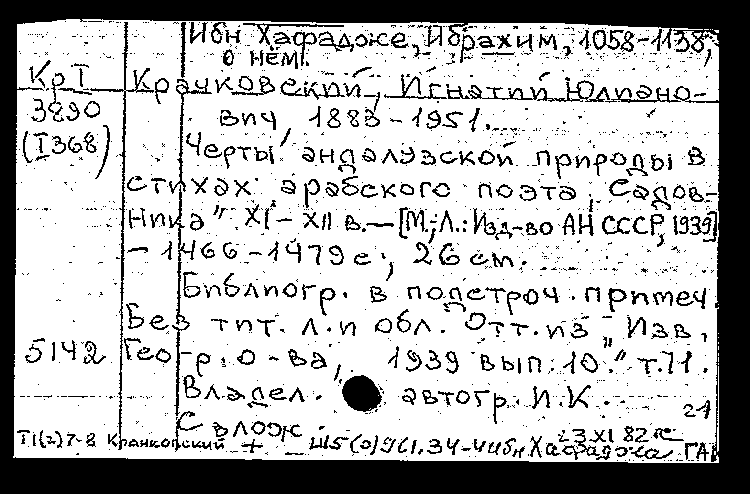 Ибн Хафадже, Ибрахим, 1058-1138,
о нем.
Кр I Крачковский, Игнатий Юлиано-
3890 вич, 1883-1951.
(I 368) Черты андалузской природы в
стихах арабского поэта „Садов-
ника" XI-XII в. — [М.; Л.: Изд-во АН СССР, 1939]
- 1466-1479 с.; 26 см.
Библиогр. в подстроч. примеч.
Без тит. л. и обл. Отт. из „Изв.
5142 Геогр. о-ва, 1939 вып. 10." т. 71.
Владел. автогр. И. К.
С влож. 21
23 XI 82
Т1(2)7-8 Крачковский + Ш5(0)9(1.34-4 Ибн Хафаджа ГАК